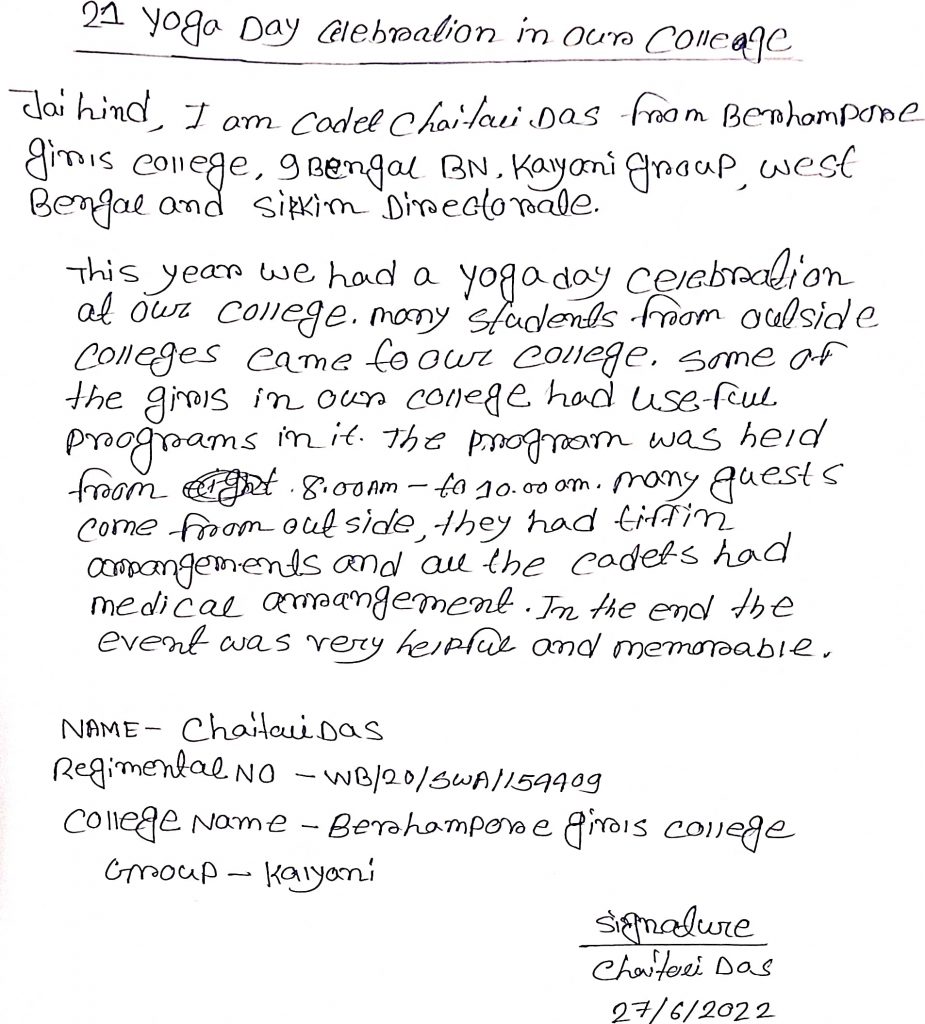 21 Yoga Day Celebration in our College
Jai hind, I am Cadet Chaitali Das from Berhampore
girls college, 9 Bengal BN, Kalyani group, west
Bengal and Sikkim Directorate.
This year we had a yoga day celebration
at our college. many students from outside
colleges came to our college. some of
the girls in our college had useful
programs in it. The program was held
from 8.00 AM - to 10.00 am. many guests
come from out side, they had tiffin
arrangements and all the cadets had
medical arrangement. In the end the
event was very helpful and memorable.
NAME - Chaitali Das
Regimental NO - WB/20/SWA/159409
College Name - Berhampore girls college
Group - Kalyani
Signature
Chaitali Das
27/6/2022